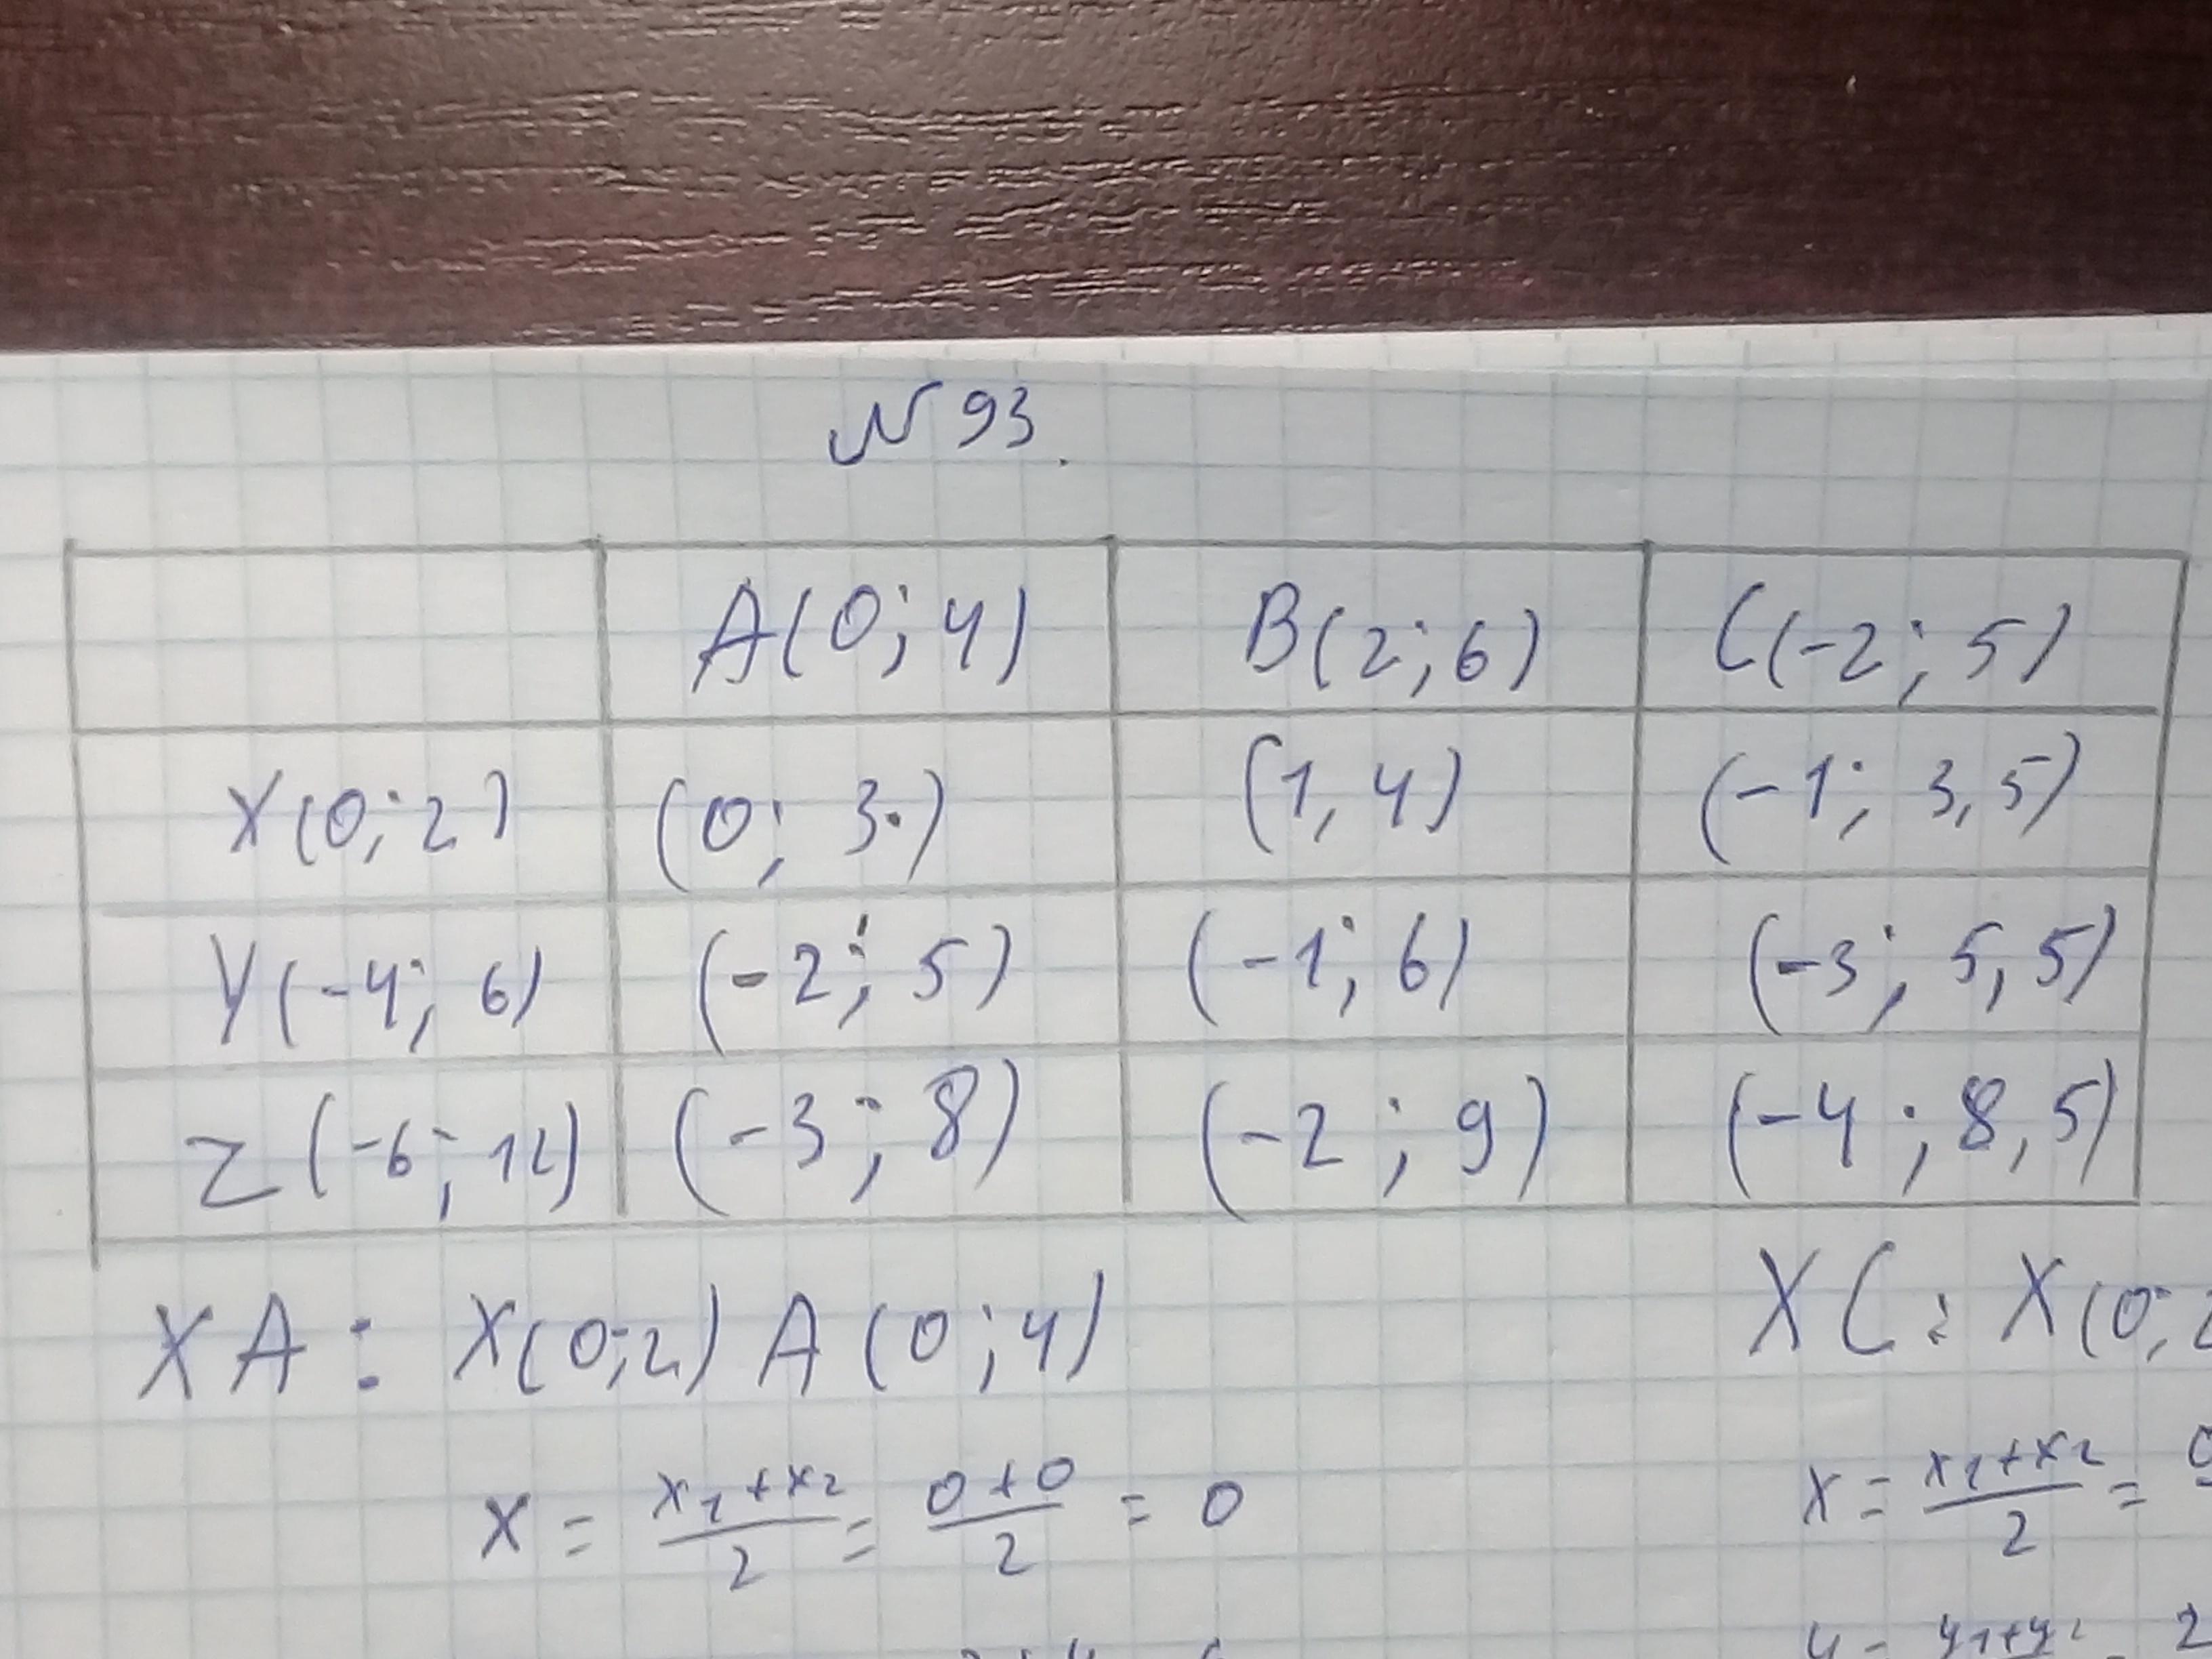 № 93.
A(0; 4) B(2; 6) C(-2; 5)
X(0; 2) (0; 3.) (1, 4) (-1; 3,5)
Y(-4; 6) (-2; 5) (-1; 6) (-3; 5,5)
Z(-6; 12) (-3; 8) (-2; 9) (-4; 8,5)
XA: X(0;2) A(0;4)
x = x₁+x₂/2 = 0+0/2 = 0
XC: X(0;
x = x₁+x₂/2 =
y = y₁+y₂ = 2